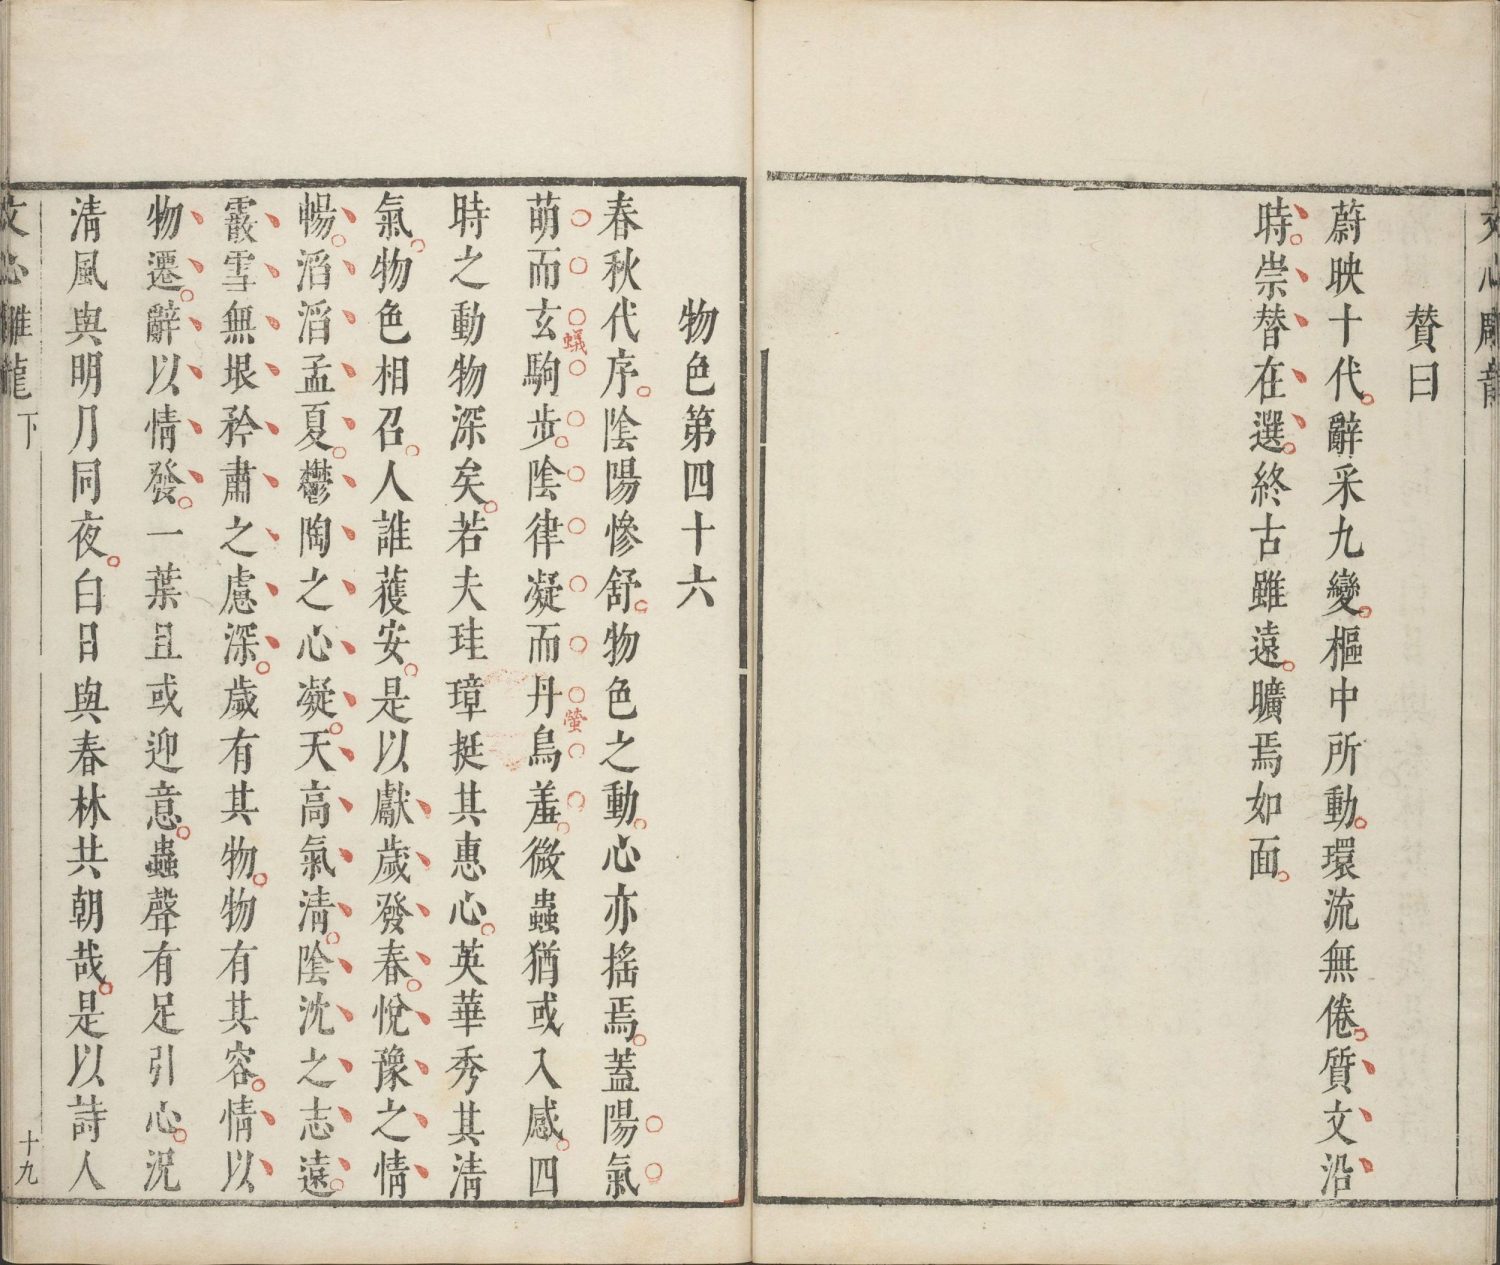 贊曰
蔚映十代辭采九變樞中所動環流無倦質文沿
時崇替在選終古雖遠曠焉如面
物色第四十六
春秋代序陰陽慘舒物色之動心亦搖焉蓋陽氣
萌而玄駒步陰律凝而丹鳥羞微蟲猶或入感四
蟻
螢
時之動物深矣若夫珪璋挺其惠心英華秀其清
氣物色相召人誰獲安是以獻歲發春悅豫之情
暢滔滔孟夏鬱陶之心凝天高氣清陰沈之志遠
霰雪無垠矜肅之慮深歲有其物物有其容情以
物遷辭以情發一葉且或迎意蟲聲有足引心況
清風與明月同夜白日與春林共朝哉是以詩人
文心雕龍 下
十九